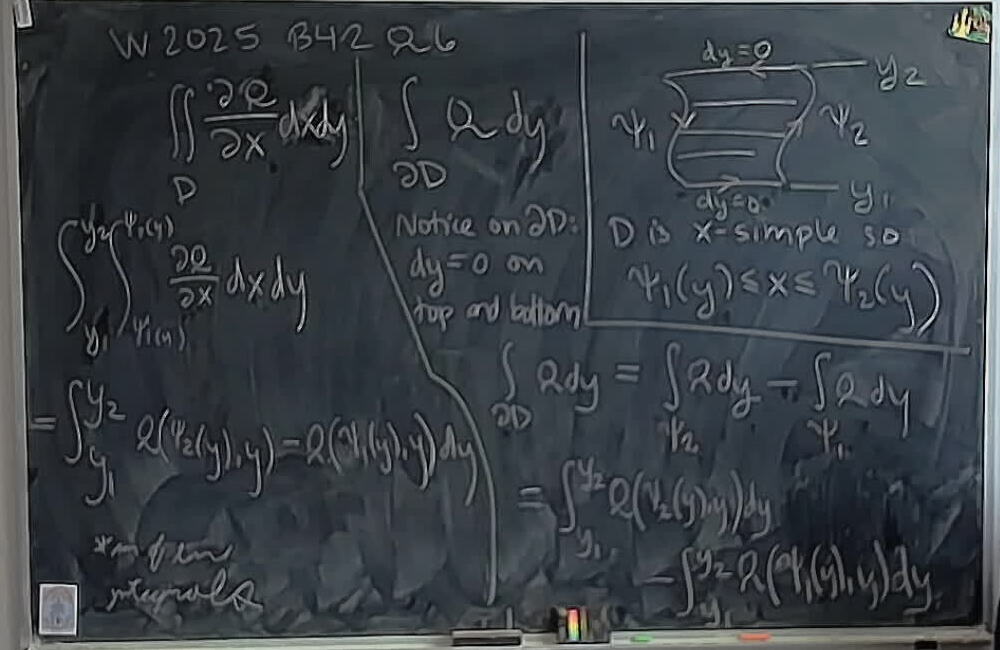 W 2025 B42 Q6
∬_D ∂Q/∂x dxdy
∫_{y₁}^{y₂} ∫_{Ψ₁(y)}^{Ψ₁(y)} ∂Q/∂x dx dy
= ∫_{y₁}^{y₂} Q(Ψ₂(y), y) = Q(Ψ₁(y), y) dy
integrals
∫_{∂D} Q dy
Notice on ∂D:
dy=0 on
top and bottom
dy=0
y₂
Ψ₁ Ψ₂
y₁
dy=0
D is x-simple so
Ψ₁(y) ≤ x ≤ Ψ₂(y)
∫_{∂D} Q dy = ∫_{Ψ₂} Q dy − ∫_{Ψ₁} Q dy
= ∫_{y₁}^{y₂} Q(Ψ₂(y), y) dy
− ∫_{y₁}^{y₂} Q(Ψ₁(y), y) dy